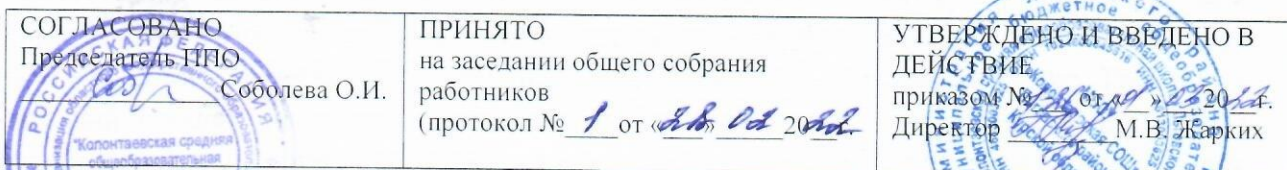 СОГЛАСОВАНО
Председатель ППО
Соболева О.И.
ПРИНЯТО
на заседании общего собрания
работников
(протокол № 1 от «28» 02 2022
УТВЕРЖДЕНО И ВВЕДЕНО В
ДЕЙСТВИЕ
приказом № от « » 20 г.
Директор М.В. Жарких
РОССИЙСКАЯ ФЕДЕРАЦИЯ
"Колонтаевская средняя
общеобразовательная